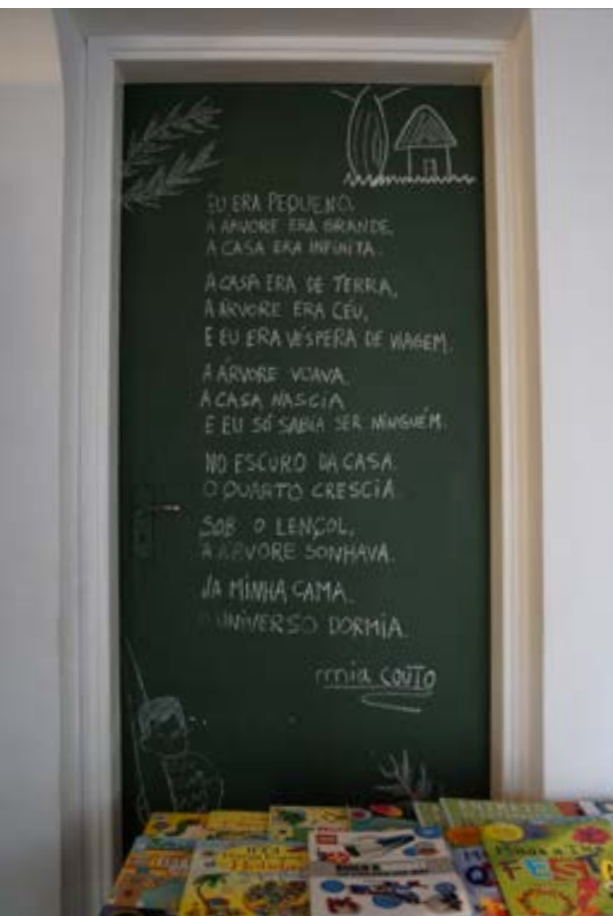 EU ERA PEQUENO,
A ÁRVORE ERA GRANDE,
A CASA ERA INFINITA.
A CASA ERA DE TERRA,
A ÁRVORE ERA CÉU,
E EU ERA VÉSPERA DE VIAGEM.
A ÁRVORE VOAVA,
A CASA NASCIA
E EU SÓ SABIA SER NINGUÉM.
NO ESCURO DA CASA.
O QUARTO CRESCIA.
SOB O LENÇOL,
A ÁRVORE SONHAVA.
NA MINHA CAMA.
O UNIVERSO DORMIA.
mia COUTO